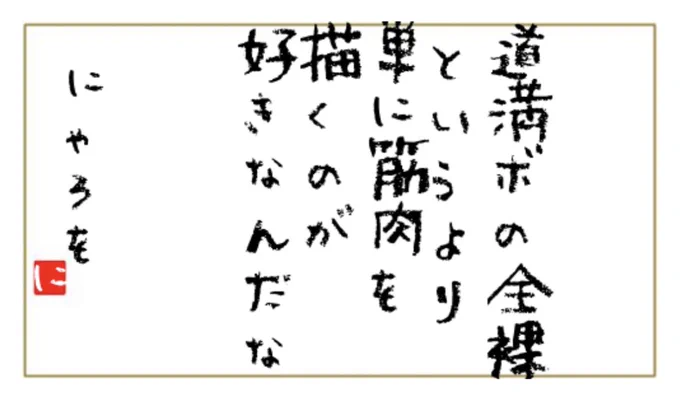 道満ボの全裸
というより
単に筋肉を
描くのが
好きなんだな
にゃろを
に